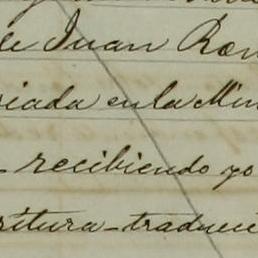 de Juan Rom
iada en la Min
recibiendo yo
ritura - traducci